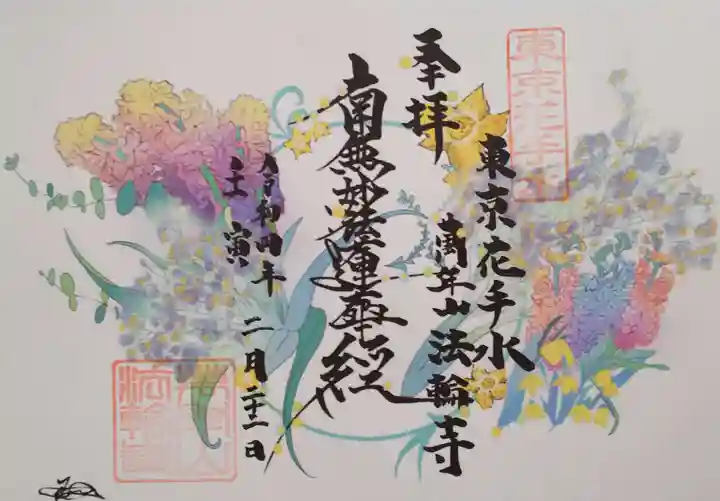 東京花手水
東京花手水
萬年山法輪寺
奉拝
南無妙法蓮華經
令和四年
壬寅
二月二十二日